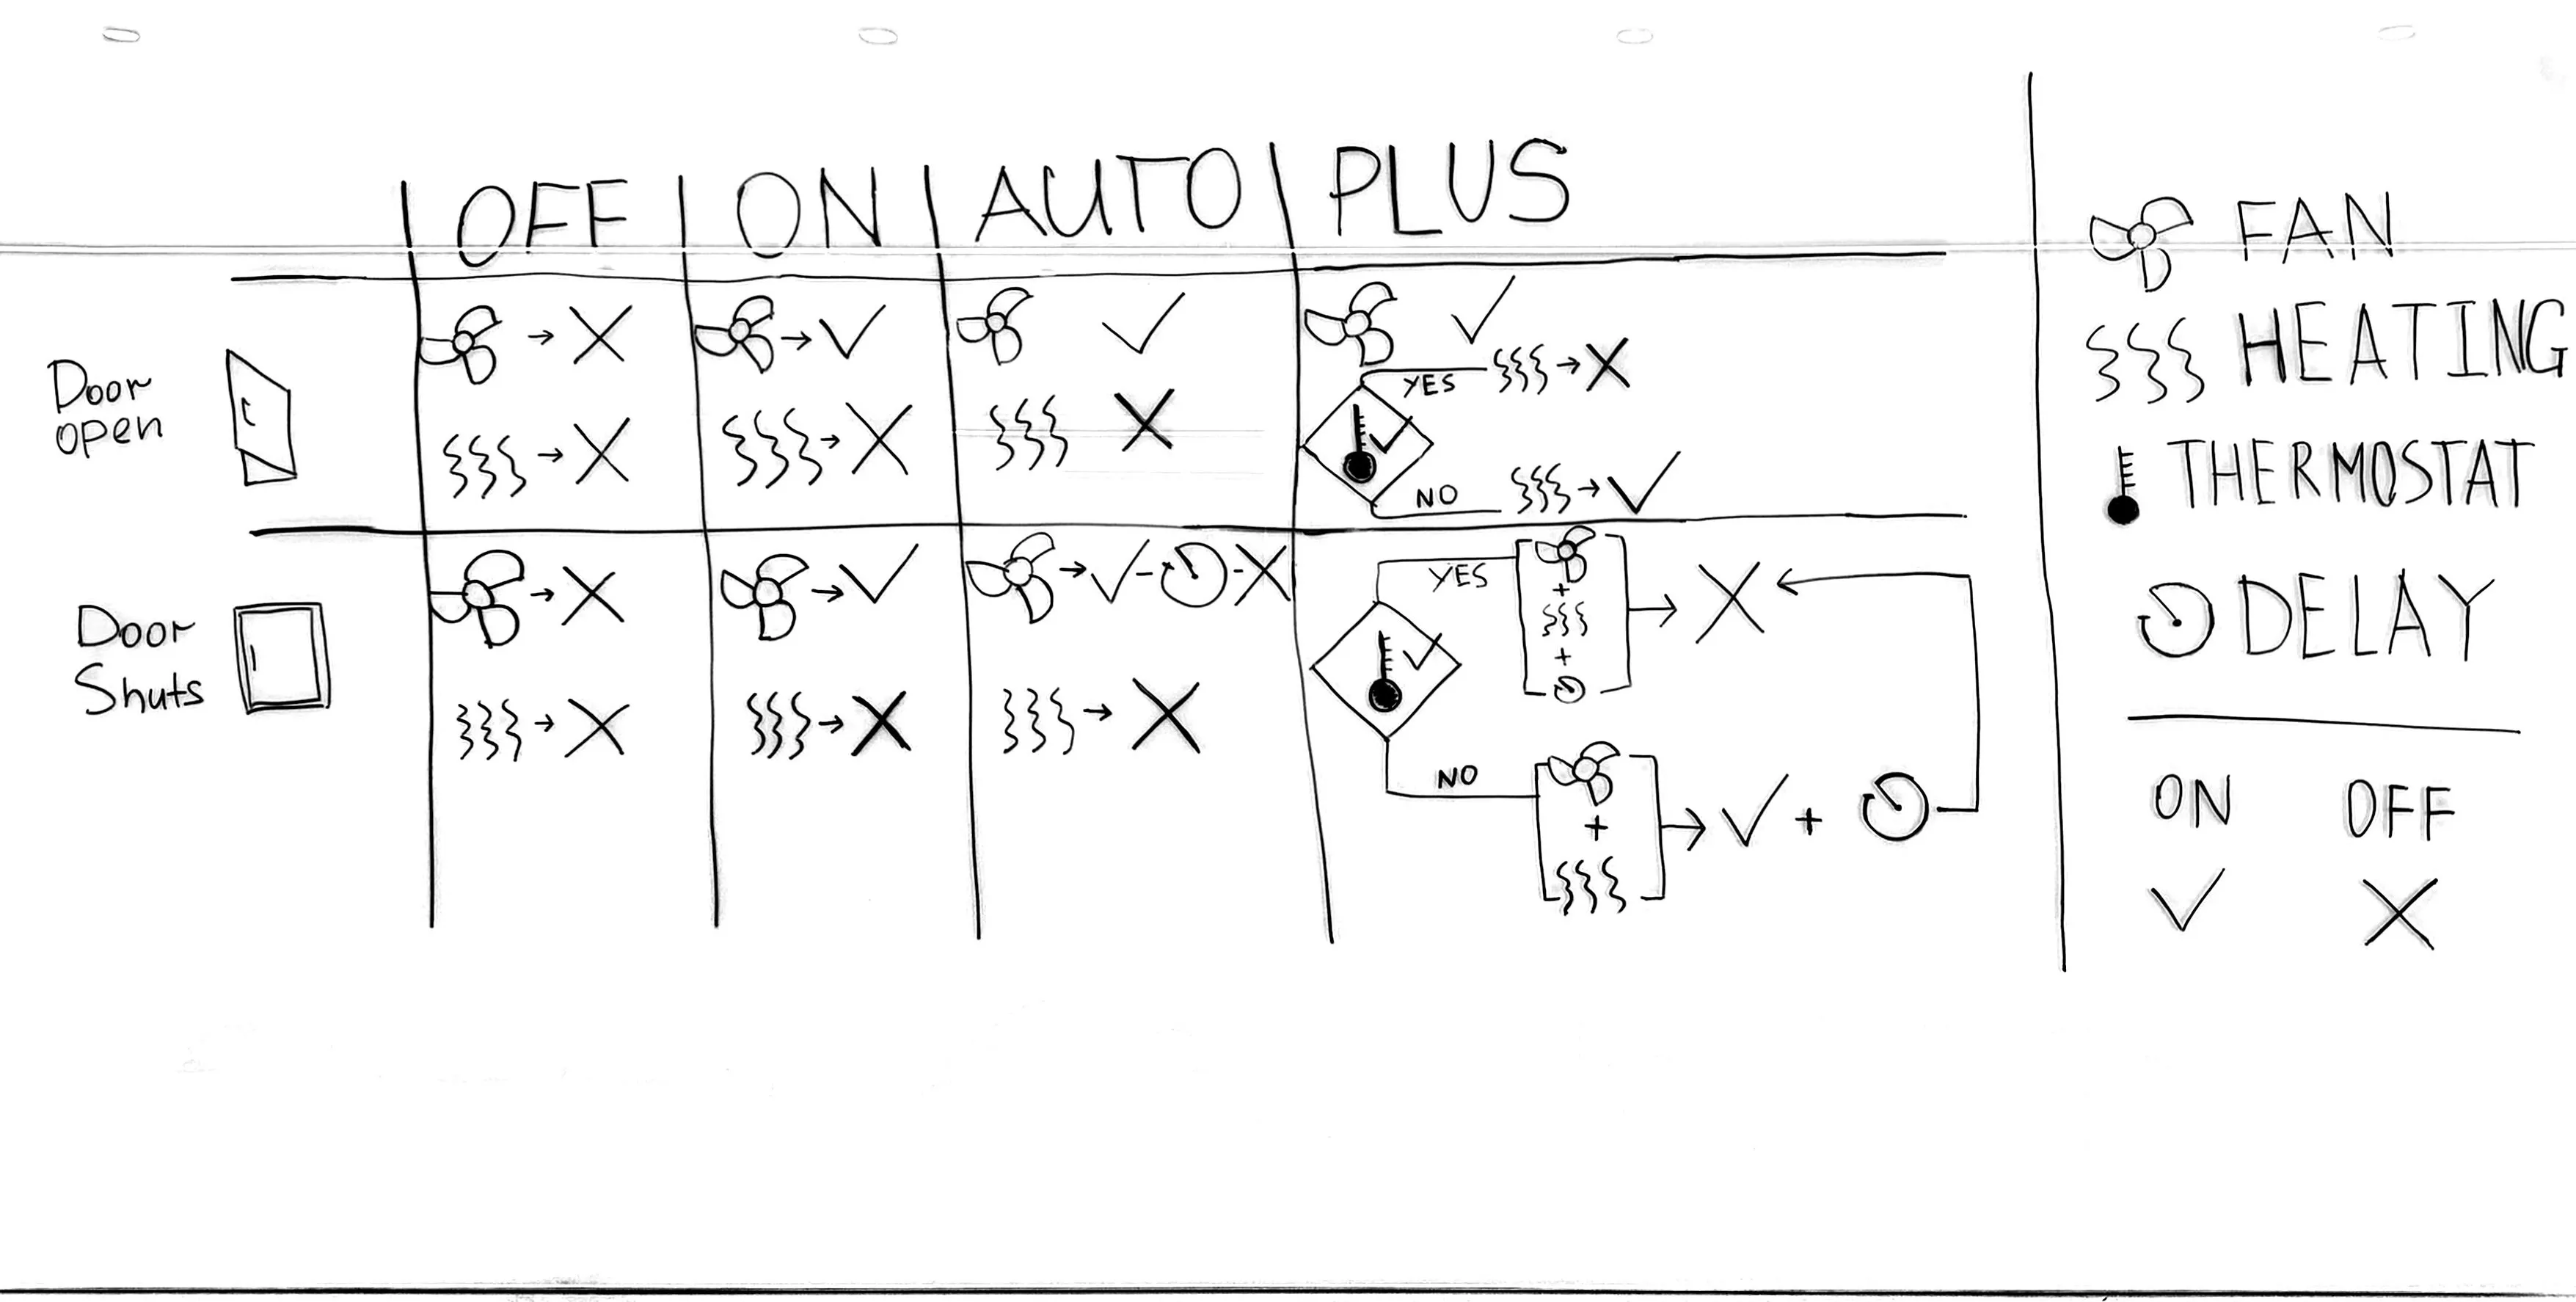 OFF ON AUTO PLUS
Door
open
YES
NO
Door
Shuts
YES
NO
FAN
HEATING
THERMOSTAT
DELAY
ON OFF